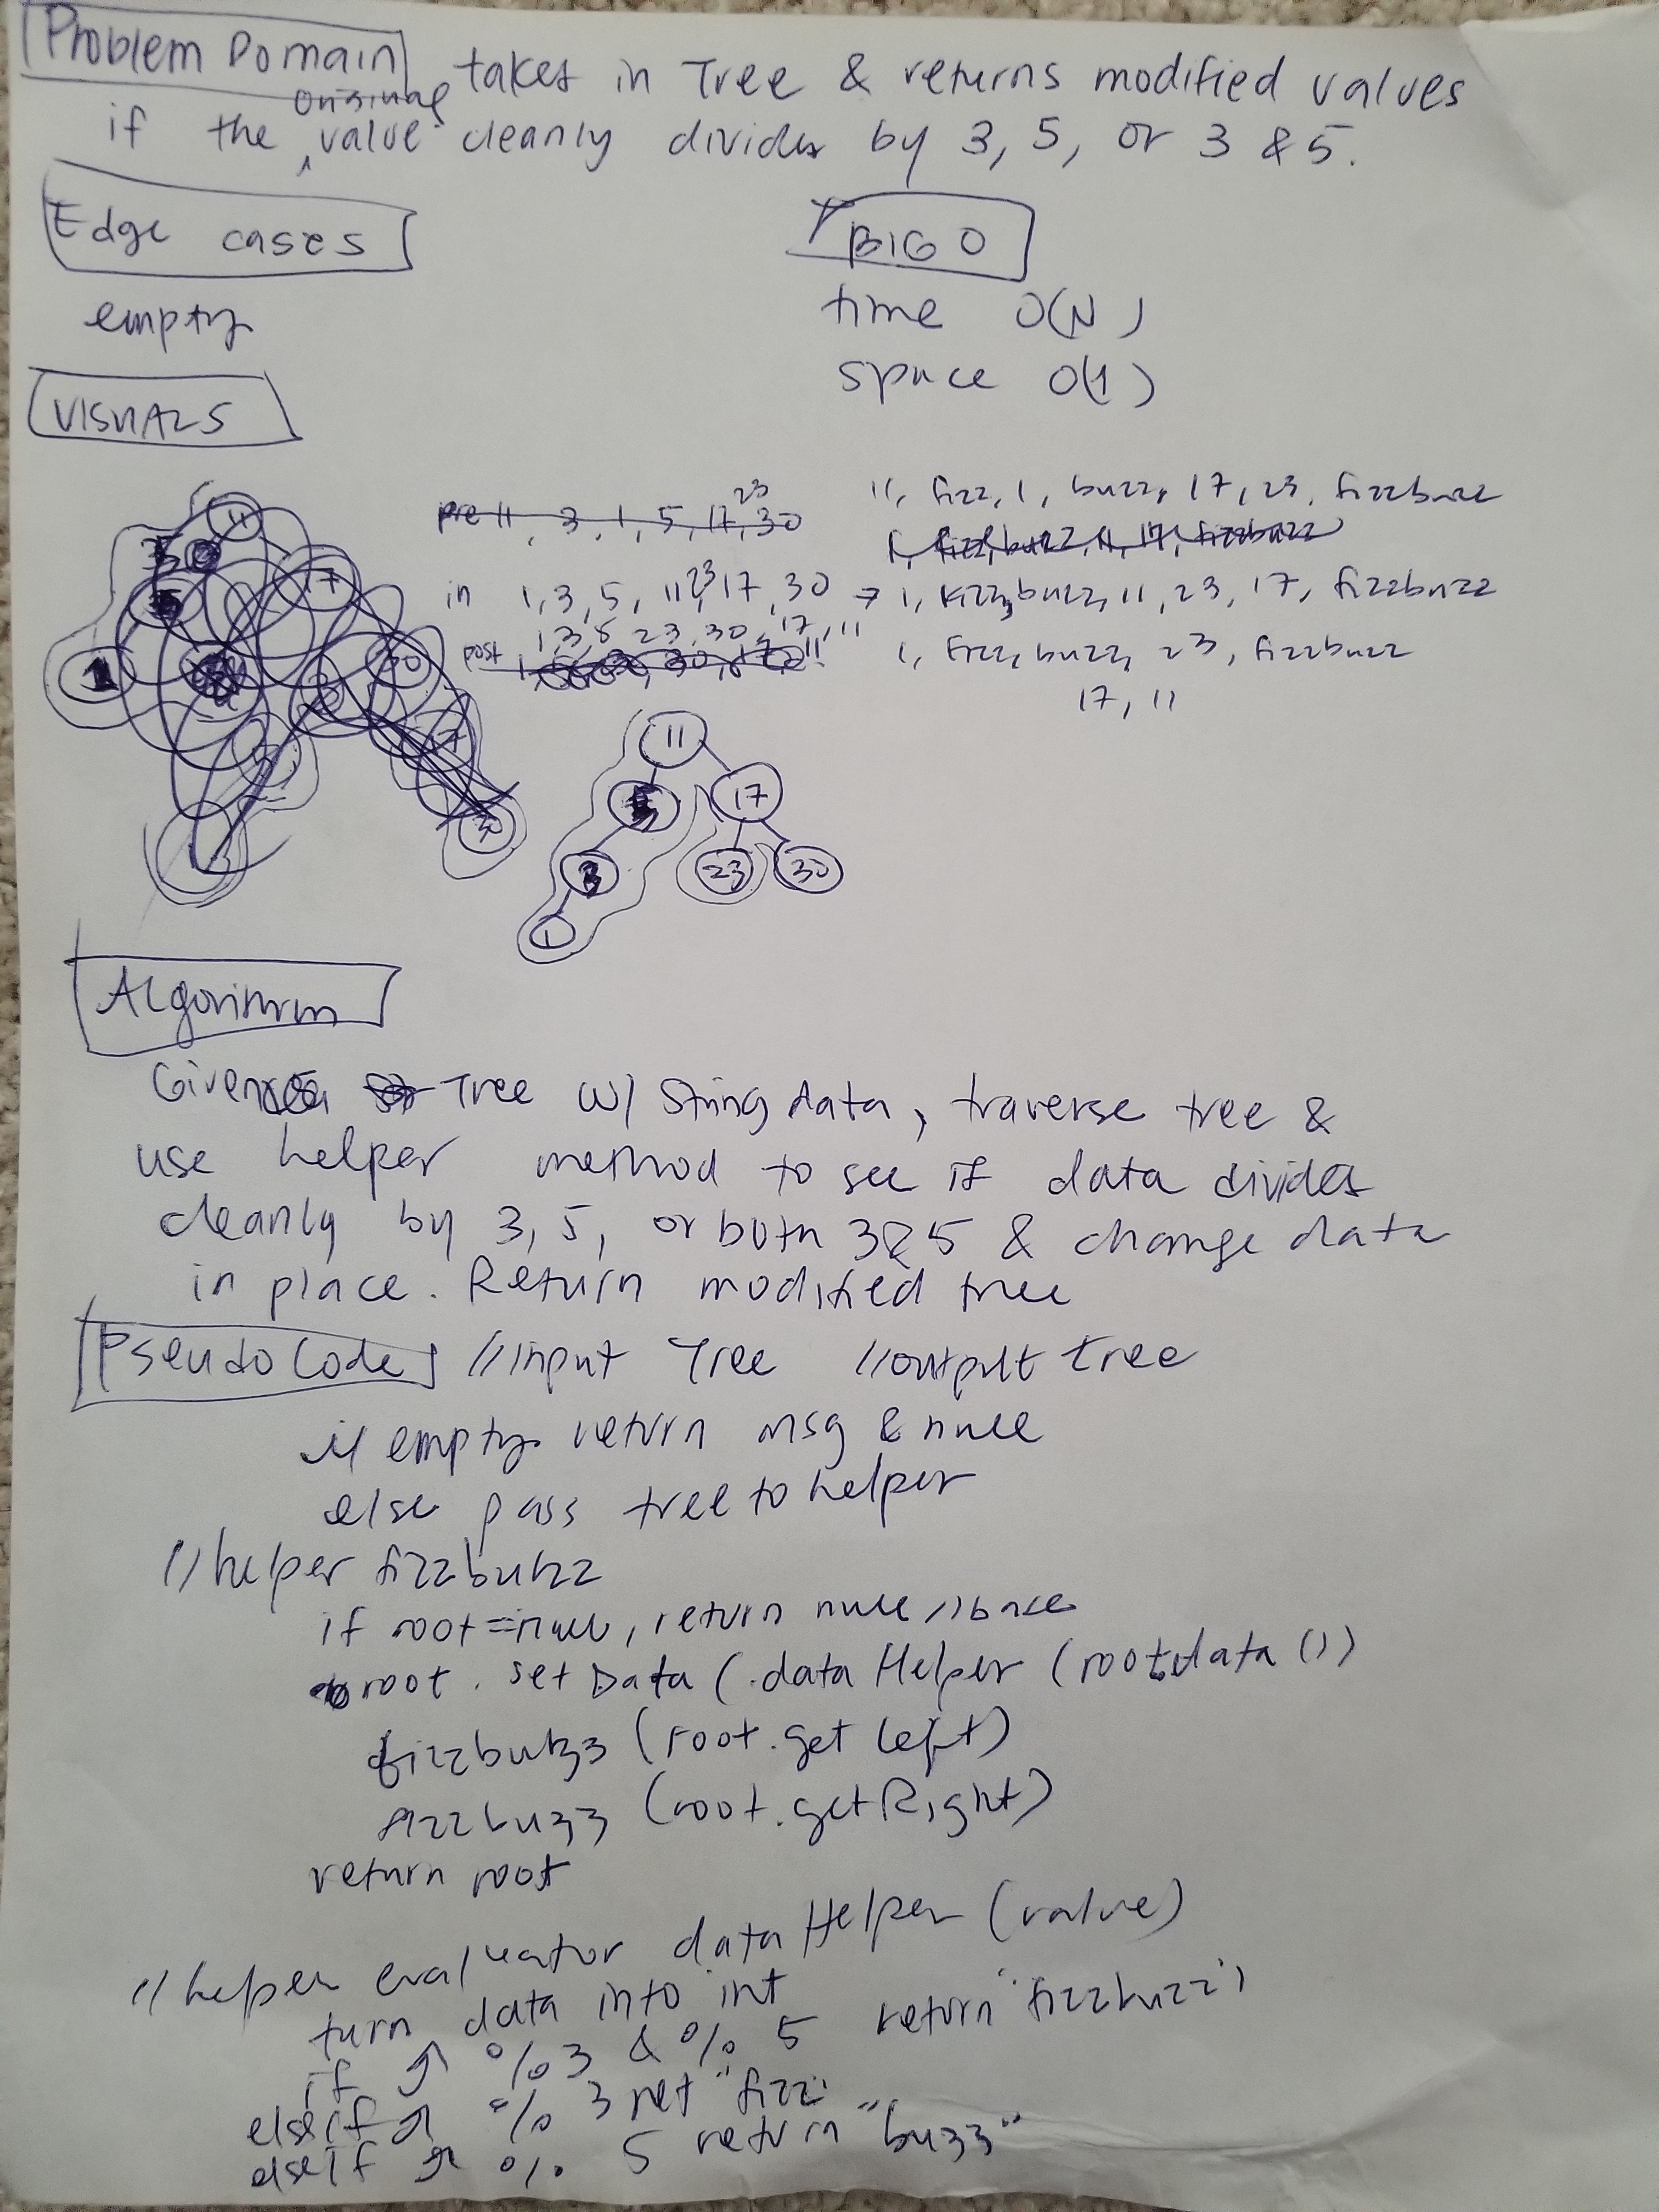 Problem Domain takes in Tree & returns modified values
original
if the value cleanly divides by 3, 5, or 3 & 5.
Edge cases
BIG O
empty
time O(N)
space O(1)
VISUALS
11
7
1
30
30
23
pre 11, 3, 1, 5, 17, 30
11, fizz, 1, buzz, 17, 23, fizzbuzz
1, fizz, buzz, 11, 17, fizzbuzz
23
in 1, 3, 5, 11, 17, 30 → 1, fizz, buzz, 11, 23, 17, fizzbuzz
1, 3, 5, 23, 30, 17, 11
post
1, fizz, buzz, 23, fizzbuzz
17, 11
11
5 17
3 23 30
1
Algorithm
Given Tree w/ String data, traverse tree &
use helper method to see if data divides
cleanly by 3, 5, or both 3 & 5 & change data
in place. Return modified tree
Pseudo Code //input Tree //output tree
if empty return msg & null
else pass tree to helper
//helper fizzbuzz
if root = null, return null //base
root.setData(.dataHelper(root.data())
fizzbuzz (root.getLeft)
fizzbuzz (root.getRight)
return root
//helper evaluator dataHelper (value)
turn data into int
if ↗ % 3 & % 5 return "fizzbuzz"
elseif ↗ % 3 ret "fizz"
elseif ↗ % 5 return "buzz"